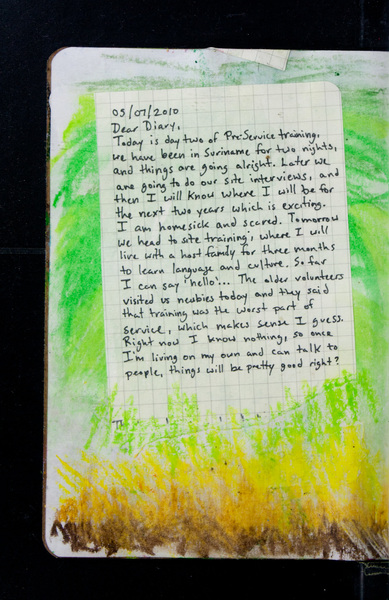 05/07/2010
Dear Diary,
Today is day two of Pre-Service training,
we have been in Suriname for two nights,
and things are going alright. Later we
are going to do our site interviews, and
then I will know where I will be for
the next two years which is exciting.
I am homesick and scared. Tomorrow
we head to site training, where I will
live with a host family for three months
to learn language and culture. So far
I can say 'hello'... The older volunteers
visited us newbies today and they said
that training was the worst part of
service, which makes sense I guess.
Right now I know nothing, so once
I'm living on my own and can talk to
people, things will be pretty good right?